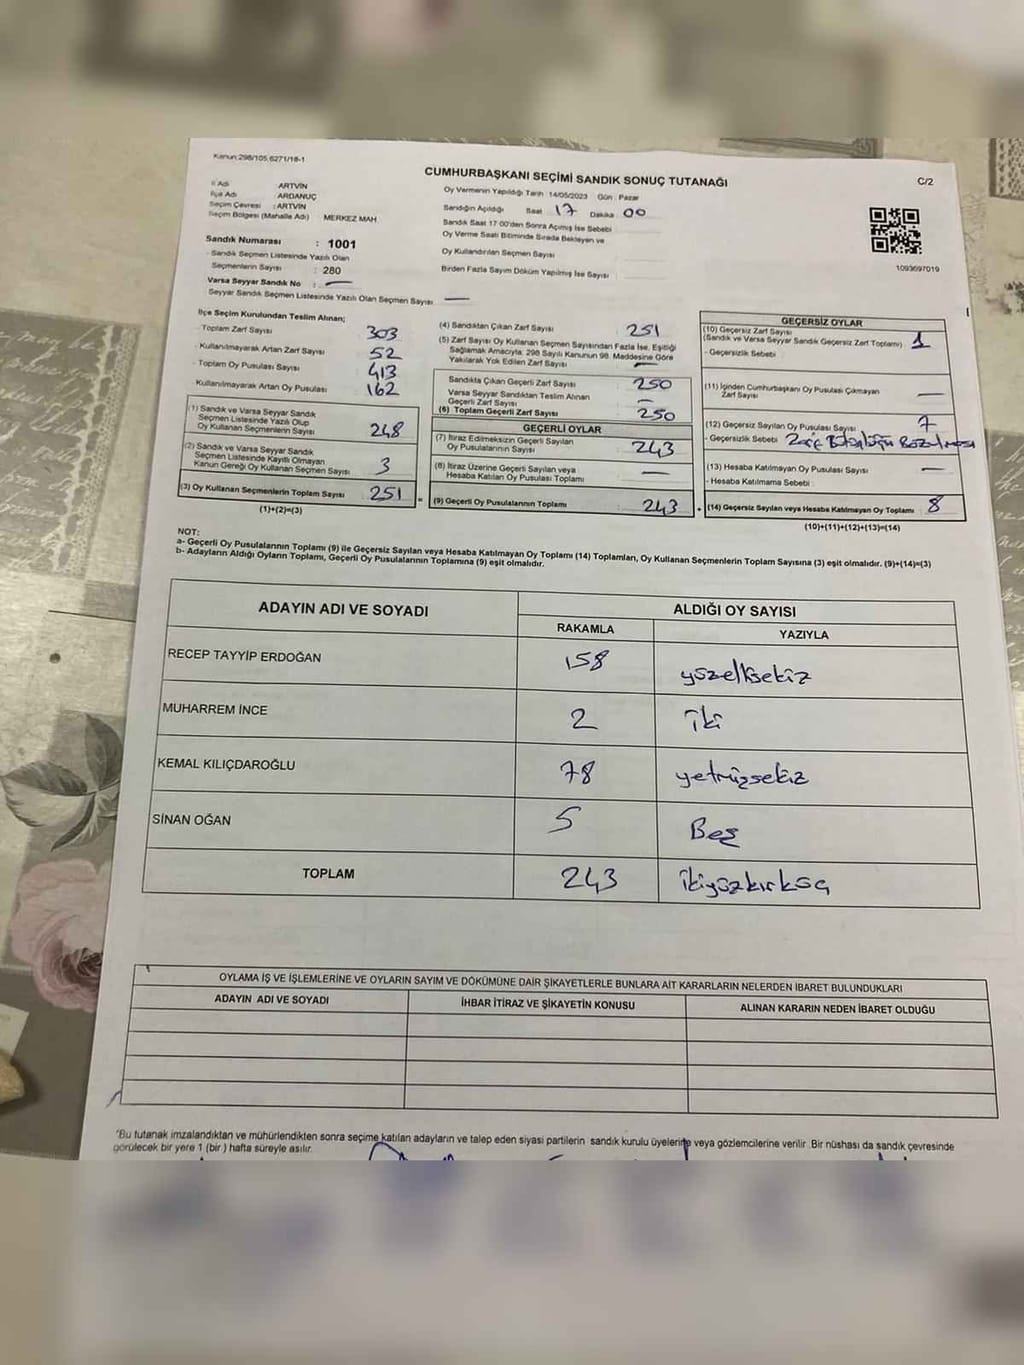 Kanun:298/105,6271/18-1
CUMHURBAŞKANI SEÇİMİ SANDIK SONUÇ TUTANAĞI
C/2
İl Adı ARTVİN
İlçe Adı ARDANUÇ
Seçim Çevresi : ARTVİN
Seçim Bölgesi (Mahalle Adı) MERKEZ MAH
Sandık Numarası : 1001
Sandık Seçmen Listesinde Yazılı Olan
Seçmenlerin Sayısı : 280
Varsa Seyyar Sandık No : —
Seyyar Sandık Seçmen Listesinde Yazılı Olan Seçmen Sayısı —
Oy Vermenin Yapıldığı Tarih 14/05/2023 Gün : Pazar
Sandığın Açıldığı Saat 17 Dakika 00
Sandık Saat 17:00'den Sonra Açımış İse Sebebi
Oy Verme Saati Bitiminde Sırada Bekleyen ve
Oy Kullandırılan Seçmen Sayısı
Birden Fazla Sayım Döküm Yapılmış İse Sayısı
1093697019
İlçe Seçim Kurulundan Teslim Alınan;
- Toplam Zarf Sayısı 303
- Kullanılmayarak Artan Zarf Sayısı 52
Toplam Oy Pusulası Sayısı 413
Kullanılmayarak Artan Oy Pusulası 162
(1) Sandık ve Varsa Seyyar Sandık
Seçmen Listesinde Yazılı Olup
Oy Kullanan Seçmenlerin Sayısı 248
(2) Sandık ve Varsa Seyyar Sandık
Seçmen Listesinde Kayıtlı Olmayan
Kanun Gereği Oy Kullanan Seçmen Sayısı 3
(3) Oy Kullanan Seçmenlerin Toplam Sayısı 251 =
(1)+(2)=(3)
(4) Sandıktan Çıkan Zarf Sayısı 251
(5) Zarf Sayısı Oy Kullanan Seçmen Sayısından Fazla İse, Eşitliği
Sağlamak Amacıyla, 298 Sayılı Kanunun 98. Maddesine Göre
Yakılarak Yok Edilen Zarf Sayısı —
Sandıkta Çıkan Geçerli Zarf Sayısı 250
Varsa Seyyar Sandıktan Teslim Alınan
Geçerli Zarf Sayısı —
(6) Toplam Geçerli Zarf Sayısı 250
GEÇERLİ OYLAR
(7) İtiraz Edilmeksizin Geçerli Sayılan
Oy Pusulalarının Sayısı 243
(8) İtiraz Üzerine Geçerli Sayılan veya
Hesaba Katılan Oy Pusulası Toplamı —
(9) Geçerli Oy Pusulalarının Toplamı 243 +
GEÇERSİZ OYLAR
(10) Geçersiz Zarf Sayısı
(Sandık ve Varsa Seyyar Sandık Geçersiz Zarf Toplamı) 1
- Geçersizlik Sebebi
(11) İçinden Cumhurbaşkanı Oy Pusulası Çıkmayan
Zarf Sayısı —
(12) Geçersiz Sayılan Oy Pusulası Sayısı 7
- Geçersizlik Sebebi Zarf Bütünlüğü Bozulması
(13) Hesaba Katılmayan Oy Pusulası Sayısı —
- Hesaba Katılmama Sebebi
(14) Geçersiz Sayılan veya Hesaba Katılmayan Oy Toplamı 8
(10)+(11)+(12)+(13)=(14)
NOT:
a- Geçerli Oy Pusulalarının Toplamı (9) ile Geçersiz Sayılan veya Hesaba Katılmayan Oy Toplamı (14) Toplamları, Oy Kullanan Seçmenlerin Toplam Sayısına (3) eşit olmalıdır. (9)+(14)=(3)
b- Adayların Aldığı Oyların Toplamı, Geçerli Oy Pusulalarının Toplamına (9) eşit olmalıdır.
ADAYIN ADI VE SOYADI ALDIĞI OY SAYISI
RAKAMLA YAZIYLA
RECEP TAYYİP ERDOĞAN 158 yüzellisekiz
MUHARREM İNCE 2 iki
KEMAL KILIÇDAROĞLU 78 yetmişsekiz
SİNAN OĞAN 5 Beş
TOPLAM 243 ikiyüzkırküç
OYLAMA İŞ VE İŞLEMLERİNE VE OYLARIN SAYIM VE DÖKÜMÜNE DAİR ŞİKAYETLERLE BUNLARA AİT KARARLARIN NELERDEN İBARET BULUNDUKLARI
ADAYIN ADI VE SOYADI İHBAR İTİRAZ VE ŞİKAYETİN KONUSU ALINAN KARARIN NEDEN İBARET OLDUĞU
*Bu tutanak imzalandıktan ve mühürlendikten sonra seçime katılan adayların ve talep eden siyasi partilerin sandık kurulu üyelerine veya gözlemcilerine verilir. Bir nüshası da sandık çevresinde
görülecek bir yere 1 (bir) hafta süreyle asılır.